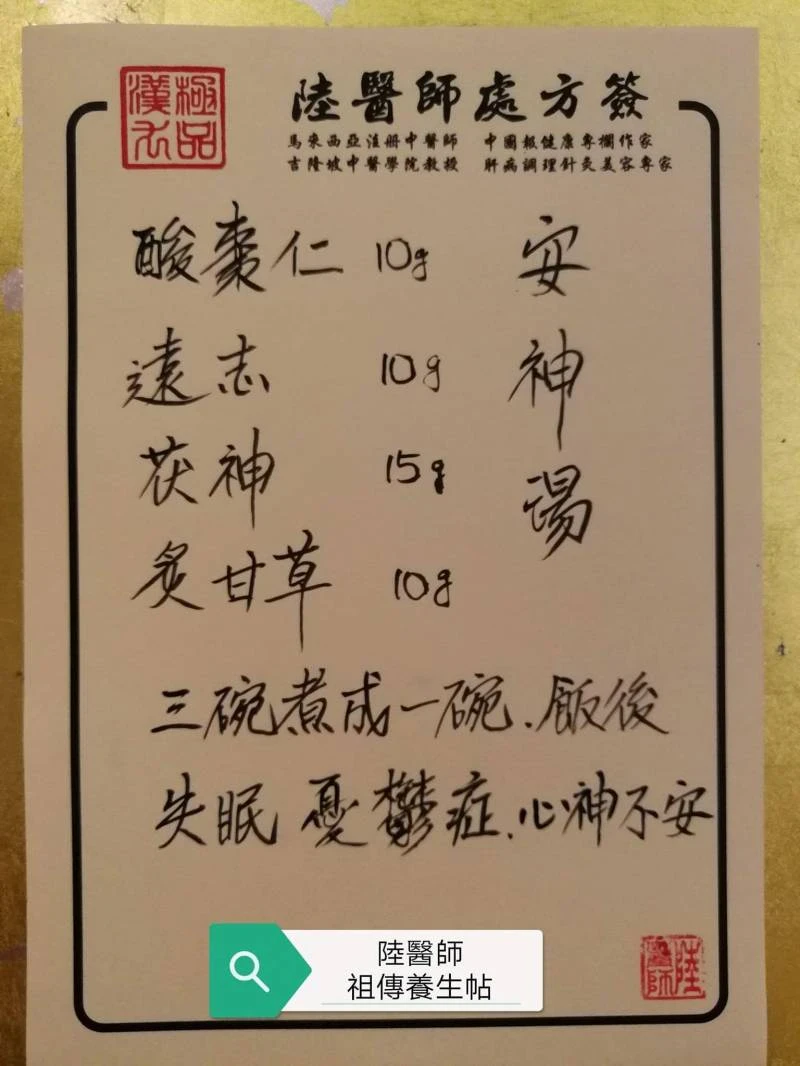 極品
漢方
陸醫師處方簽
馬來西亞注册中醫師 中國報健康專欄作家
吉隆坡中醫學院教授 肝病調理針灸美容專家
安神湯
酸棗仁 10g
遠志 10g
茯神 15g
炙甘草 10g
三碗煮成一碗.飯後
失眠 憂鬱症.心神不安
陸醫師
祖傳養生帖
陸醫師